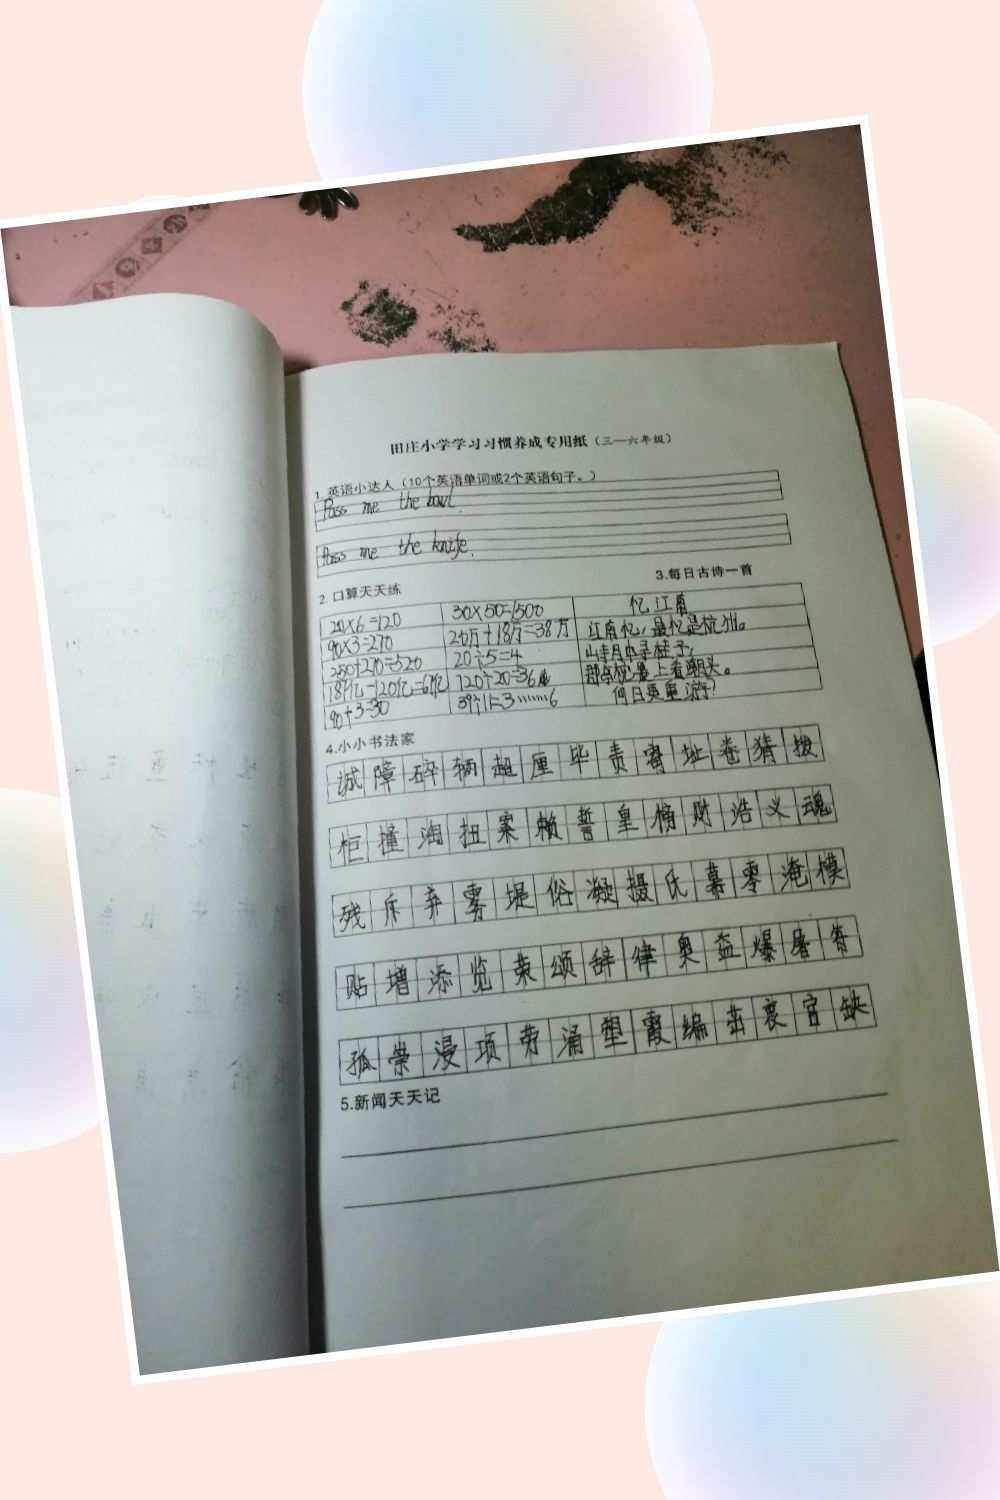 田庄小学学习习惯养成专用纸（三—六年级）
1.英语小达人（10个英语单词或2个英语句子。）
Pass me the bowl.
Pass me the knife.
2.口算天天练
3.每日古诗一首
20×6=120
30×50=1500
忆江南
90×3=270
20万+18万=38万
江南忆，最忆是杭州。
250+270=520
20÷5=4
山寺月中寻桂子，
120÷20=36
郡亭枕上看潮头。
90÷3=30
39÷11=3……6
何日更重游！
4.小小书法家
诚障碎辆超厘毕责寄址卷猜拨
柜撞淘扭案赖誓皇偷财浩义魂
残斥弃雾堤俗凝摄氏幕零淹模
贴增添览荣颂辞律奥益爆屠脊
孤崇浸项劳涌塑霞编击衰宫缺
5.新闻天天记